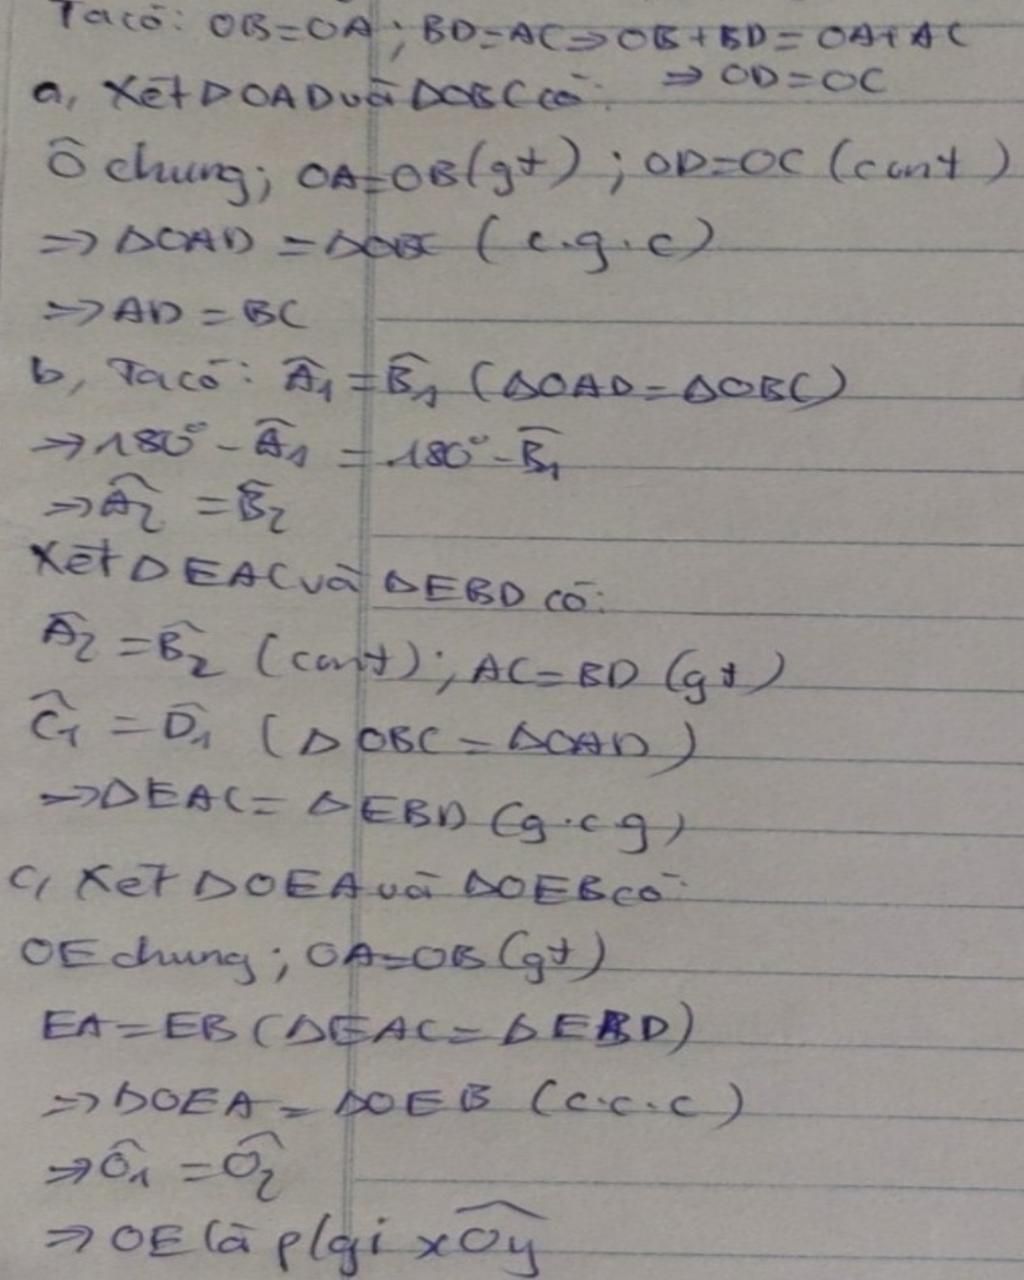 Ta có: OB=OA; BD=AC⇒OB+BD=OA+AC
⇒ OD=OC
a, Xét ΔOAD và ΔOBC có:
Ô chung; OA=OB(gt); OD=OC (cmt)
⇒ ΔOAD = ΔOBC (c.g.c)
⇒ AD = BC
b, Ta có: Â₁ = B̂₁ (ΔOAD=ΔOBC)
⇒ 180° - Â₁ = 180° - B̂₁
⇒ Â₂ = B̂₂
Xét ΔEAC và ΔEBD có:
Â₂ = B̂₂ (cmt); AC=BD (gt)
Ĉ₁ = D̂₁ (ΔOBC = ΔOAD)
⇒ ΔEAC = ΔEBD (g.c.g)
c, Xét ΔOEA và ΔOEB có:
OE chung; OA=OB (gt)
EA=EB (ΔEAC = ΔEBD)
⇒ ΔOEA = ΔOEB (c.c.c)
⇒ Ô₁ = Ô₂
⇒ OE là p/gi xÔy